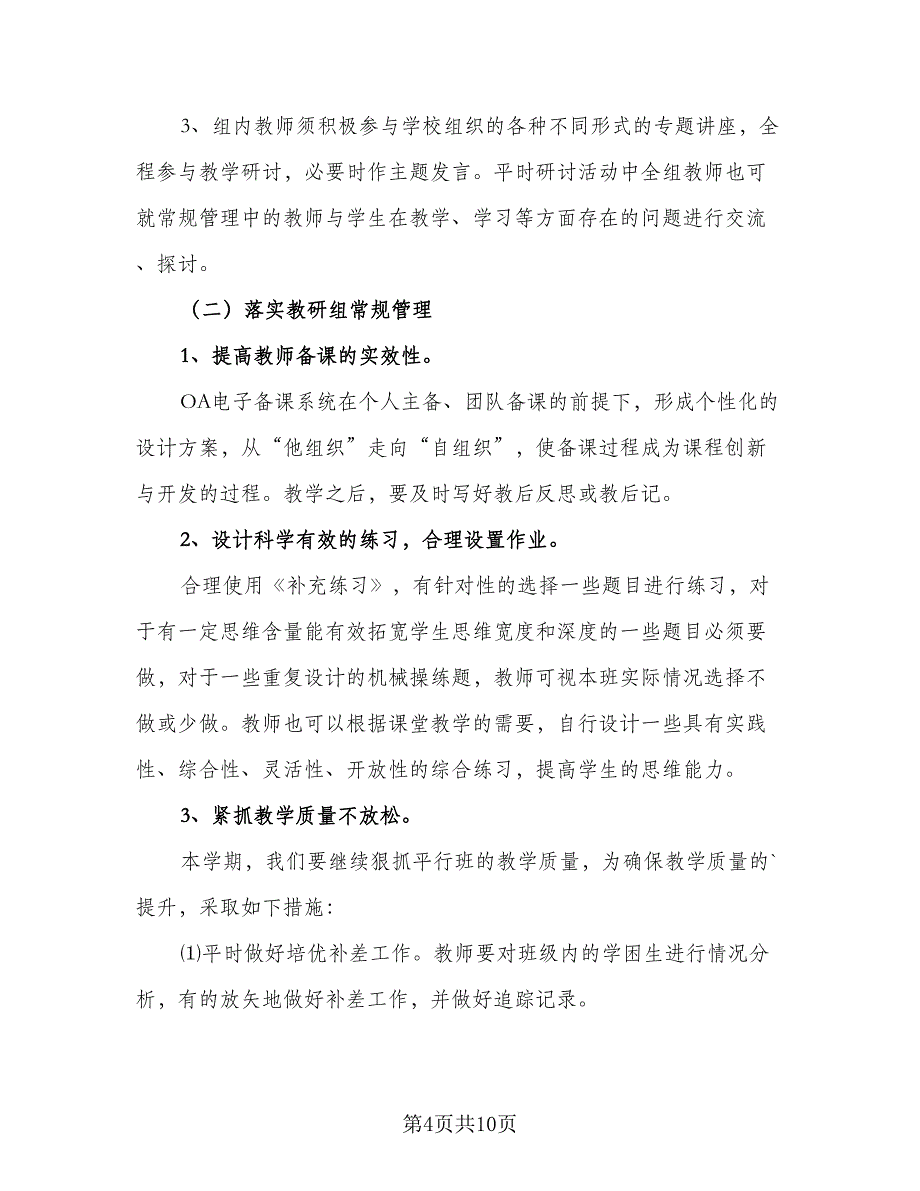 3、组内教师须积极参与学校组织的各种不同形式的专题讲座，全
程参与教学研讨，必要时作主题发言。平时研讨活动中全组教师也可
就常规管理中的教师与学生在教学、学习等方面存在的问题进行交流
、探讨。
（二）落实教研组常规管理
1、提高教师备课的实效性。
OA电子备课系统在个人主备、团队备课的前提下，形成个性化的
设计方案，从“他组织”走向“自组织”，使备课过程成为课程创新
与开发的过程。教学之后，要及时写好教后反思或教后记。
2、设计科学有效的练习，合理设置作业。
合理使用《补充练习》，有针对性的选择一些题目进行练习，对
于有一定思维含量能有效拓宽学生思维宽度和深度的一些题目必须要
做，对于一些重复设计的机械操练题，教师可视本班实际情况选择不
做或少做。教师也可以根据课堂教学的需要，自行设计一些具有实践
性、综合性、灵活性、开放性的综合练习，提高学生的思维能力。
3、紧抓教学质量不放松。
本学期，我们要继续狠抓平行班的教学质量，为确保教学质量的`
提升，采取如下措施：
⑴平时做好培优补差工作。教师要对班级内的学困生进行情况分
析，有的放矢地做好补差工作，并做好追踪记录。
第4页共10页